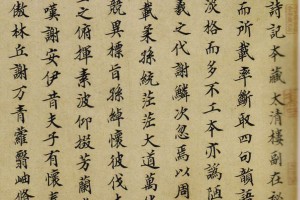 詩記本藏太清樓副在秘
而所載率斷取四句韻語
淡格而多不工本亦譌陋
羲之代謝鱗次忽焉以周
載柔孫統茫茫大道萬
競異標旨孫綽懷彼伐
之俯揮素波仰掇芳蘭
嘆謝安伊昔先子有懷
傲林丘謝万青蘿翳岫脩